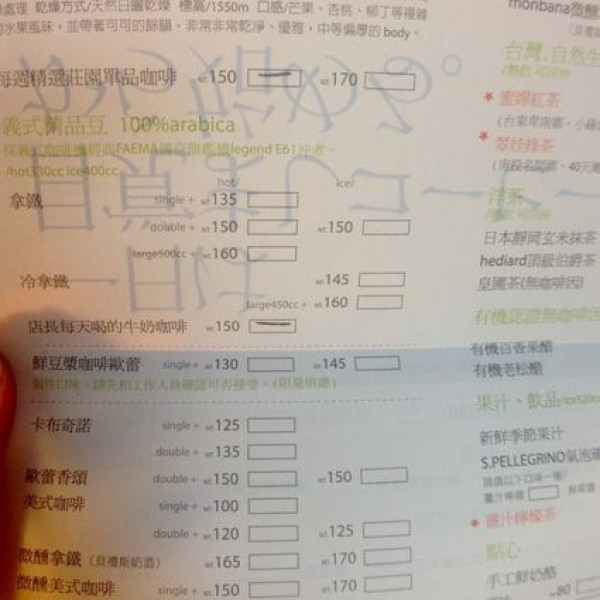 處理 乾燥方式/天然日曬乾燥 標高/1550m 口感/芒果、杏桃、柳丁等複雜
的水果風味，並帶著可可的餘韻，非常非常乾淨、優雅，中等偏厚的 body。
每週精選莊園單品咖啡 NT150 NT170
義式 品豆 100%arabica
FAEMA legend E61
/hot330cc ice400cc
hot/ ice/
拿鐵 single + NT135
double + NT150 NT150
large500cc + NT160
冷拿鐵 NT145
large450cc + NT160
店長每天喝的牛奶咖啡 NT150
鮮豆漿咖啡歐蕾 single + NT130 NT145
個性口味，請先和工作人員確認可否接受。(限量供應)
卡布奇諾 single + NT125
double + NT135
歐蕾香頌 double + NT150 NT150
美式咖啡 single + NT100
double + NT120 NT125
微醺拿鐵 (貝禮斯奶酒) NT165 NT170
微醺美式咖啡 single + NT150 NT170
monbana
台灣.自然生
★ 蜜 紅茶
(台東卑南鄉，小綠
★ 翠 綠茶
(南投名間鄉，40
洋茶
日本靜岡玄米抹茶
hediard頂級伯爵茶
皇圃茶(無咖啡因)
有機認證無咖啡因
有機百香果醋
有機老松醋
果汁、飲品
新鮮季節果汁
S.PELLEGRINO氣泡
請選以下口味一種
薑汁檸檬
★ 薑汁檸檬茶
點心
手工鮮奶酪
NT80